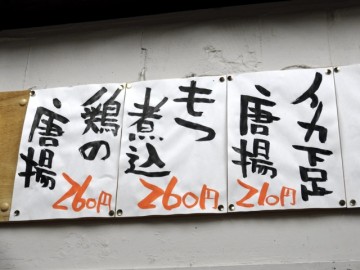 イカ下足
唐揚
210円
もつ
煮込
260円
鶏の
唐揚
260円